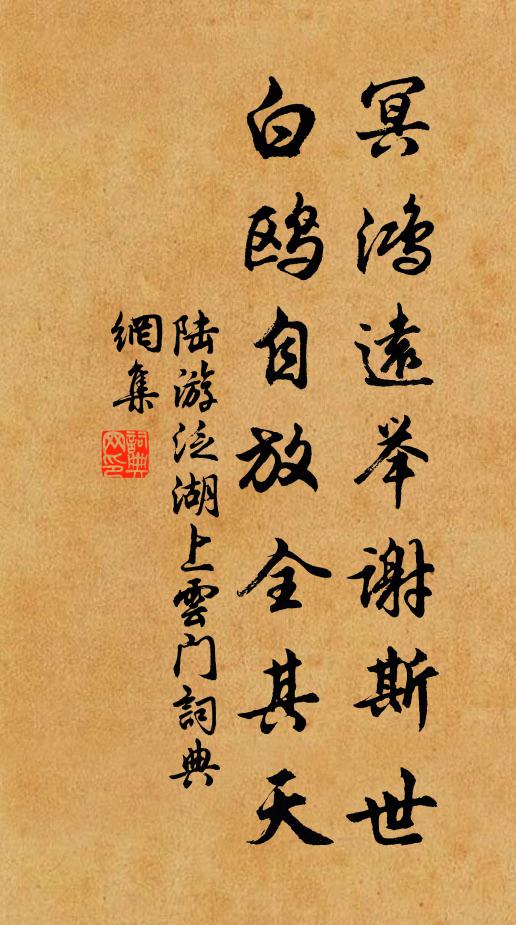 冥鴻遠举謝斯世
白鸥自放全其天
陆游泛湖上雲门詞典
網集
詞典
网印